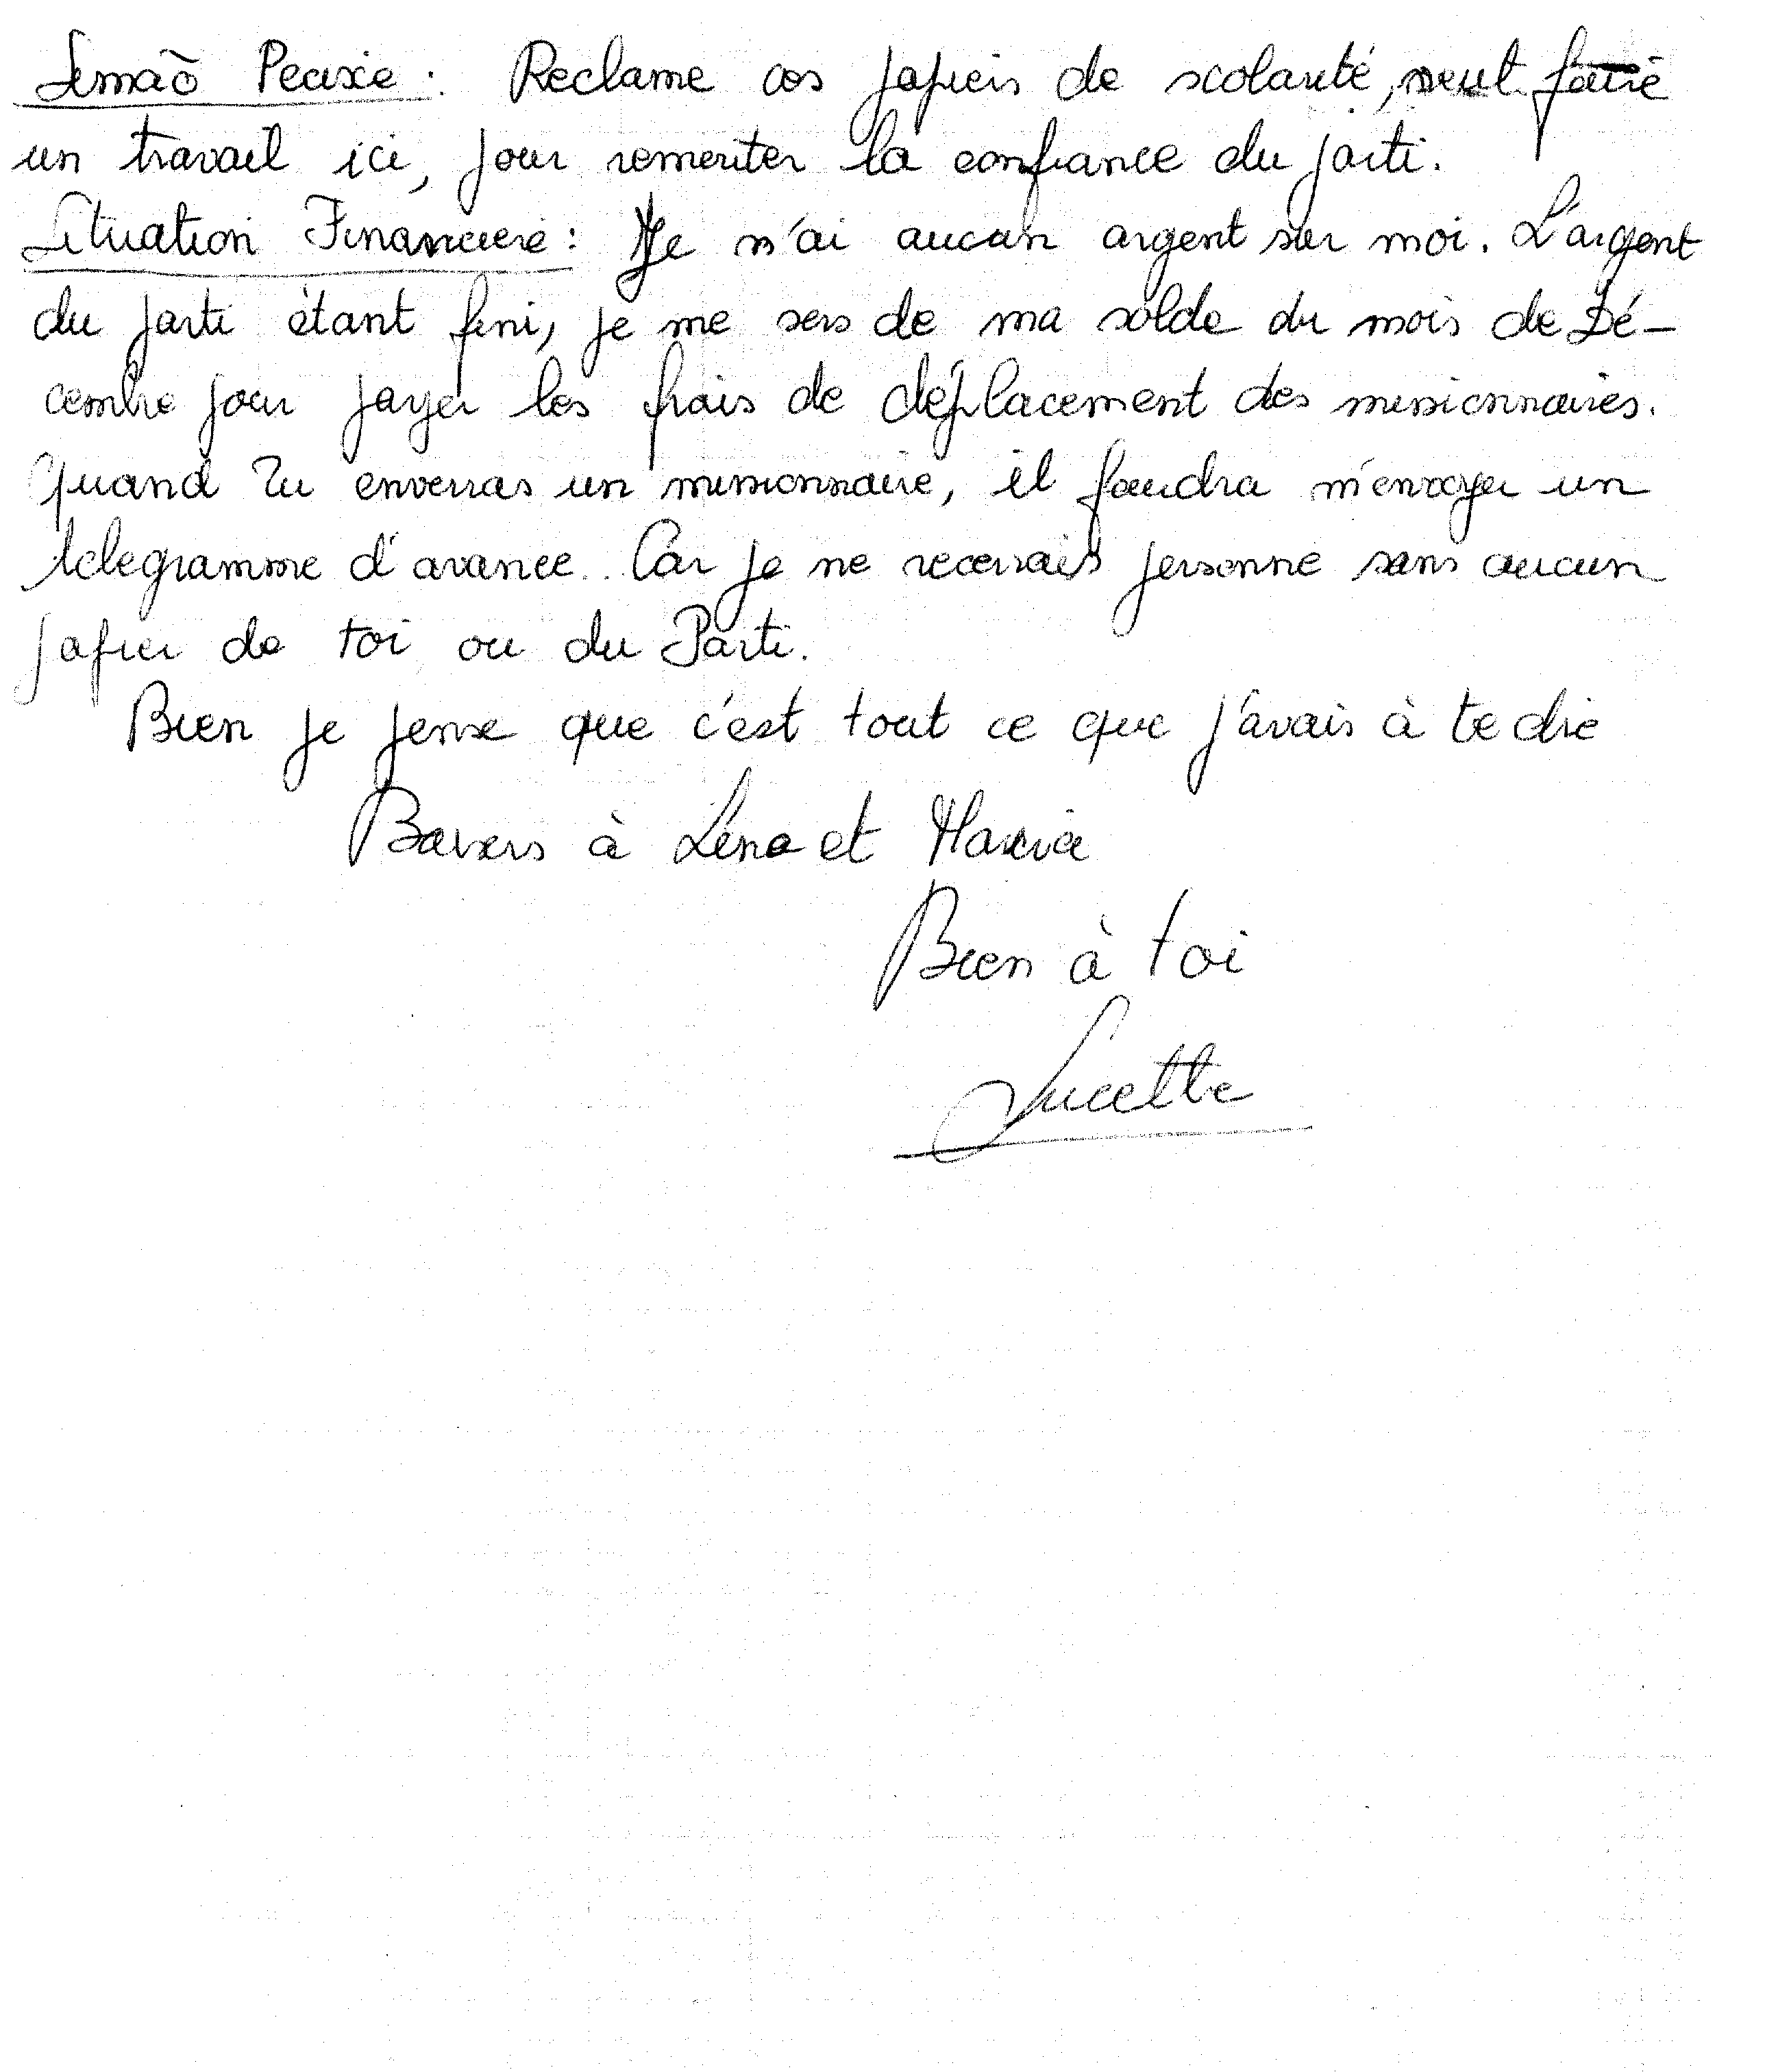 Simaõ Peixe : Reclame ces papiers de scolarité, veut faire
un travail ici, pour remeriter la confiance du parti.
Situation Financiere : Je n'ai aucun argent sur moi. L'argent
du parti étant fini, je me sers de ma solde du mois de Dé-
cembre pour payer les frais de déplacement des missionnaires.
Quand Tu enverras un missionnaire, il faudra m'envoyer un
telegramme d'avance. Car je ne recevrais personne sans aucun
papier de toi ou du Parti.
Bien je pense que c'est tout ce que j'avais à te dire
Baisers à Léna et
Bien à toi
Lucette